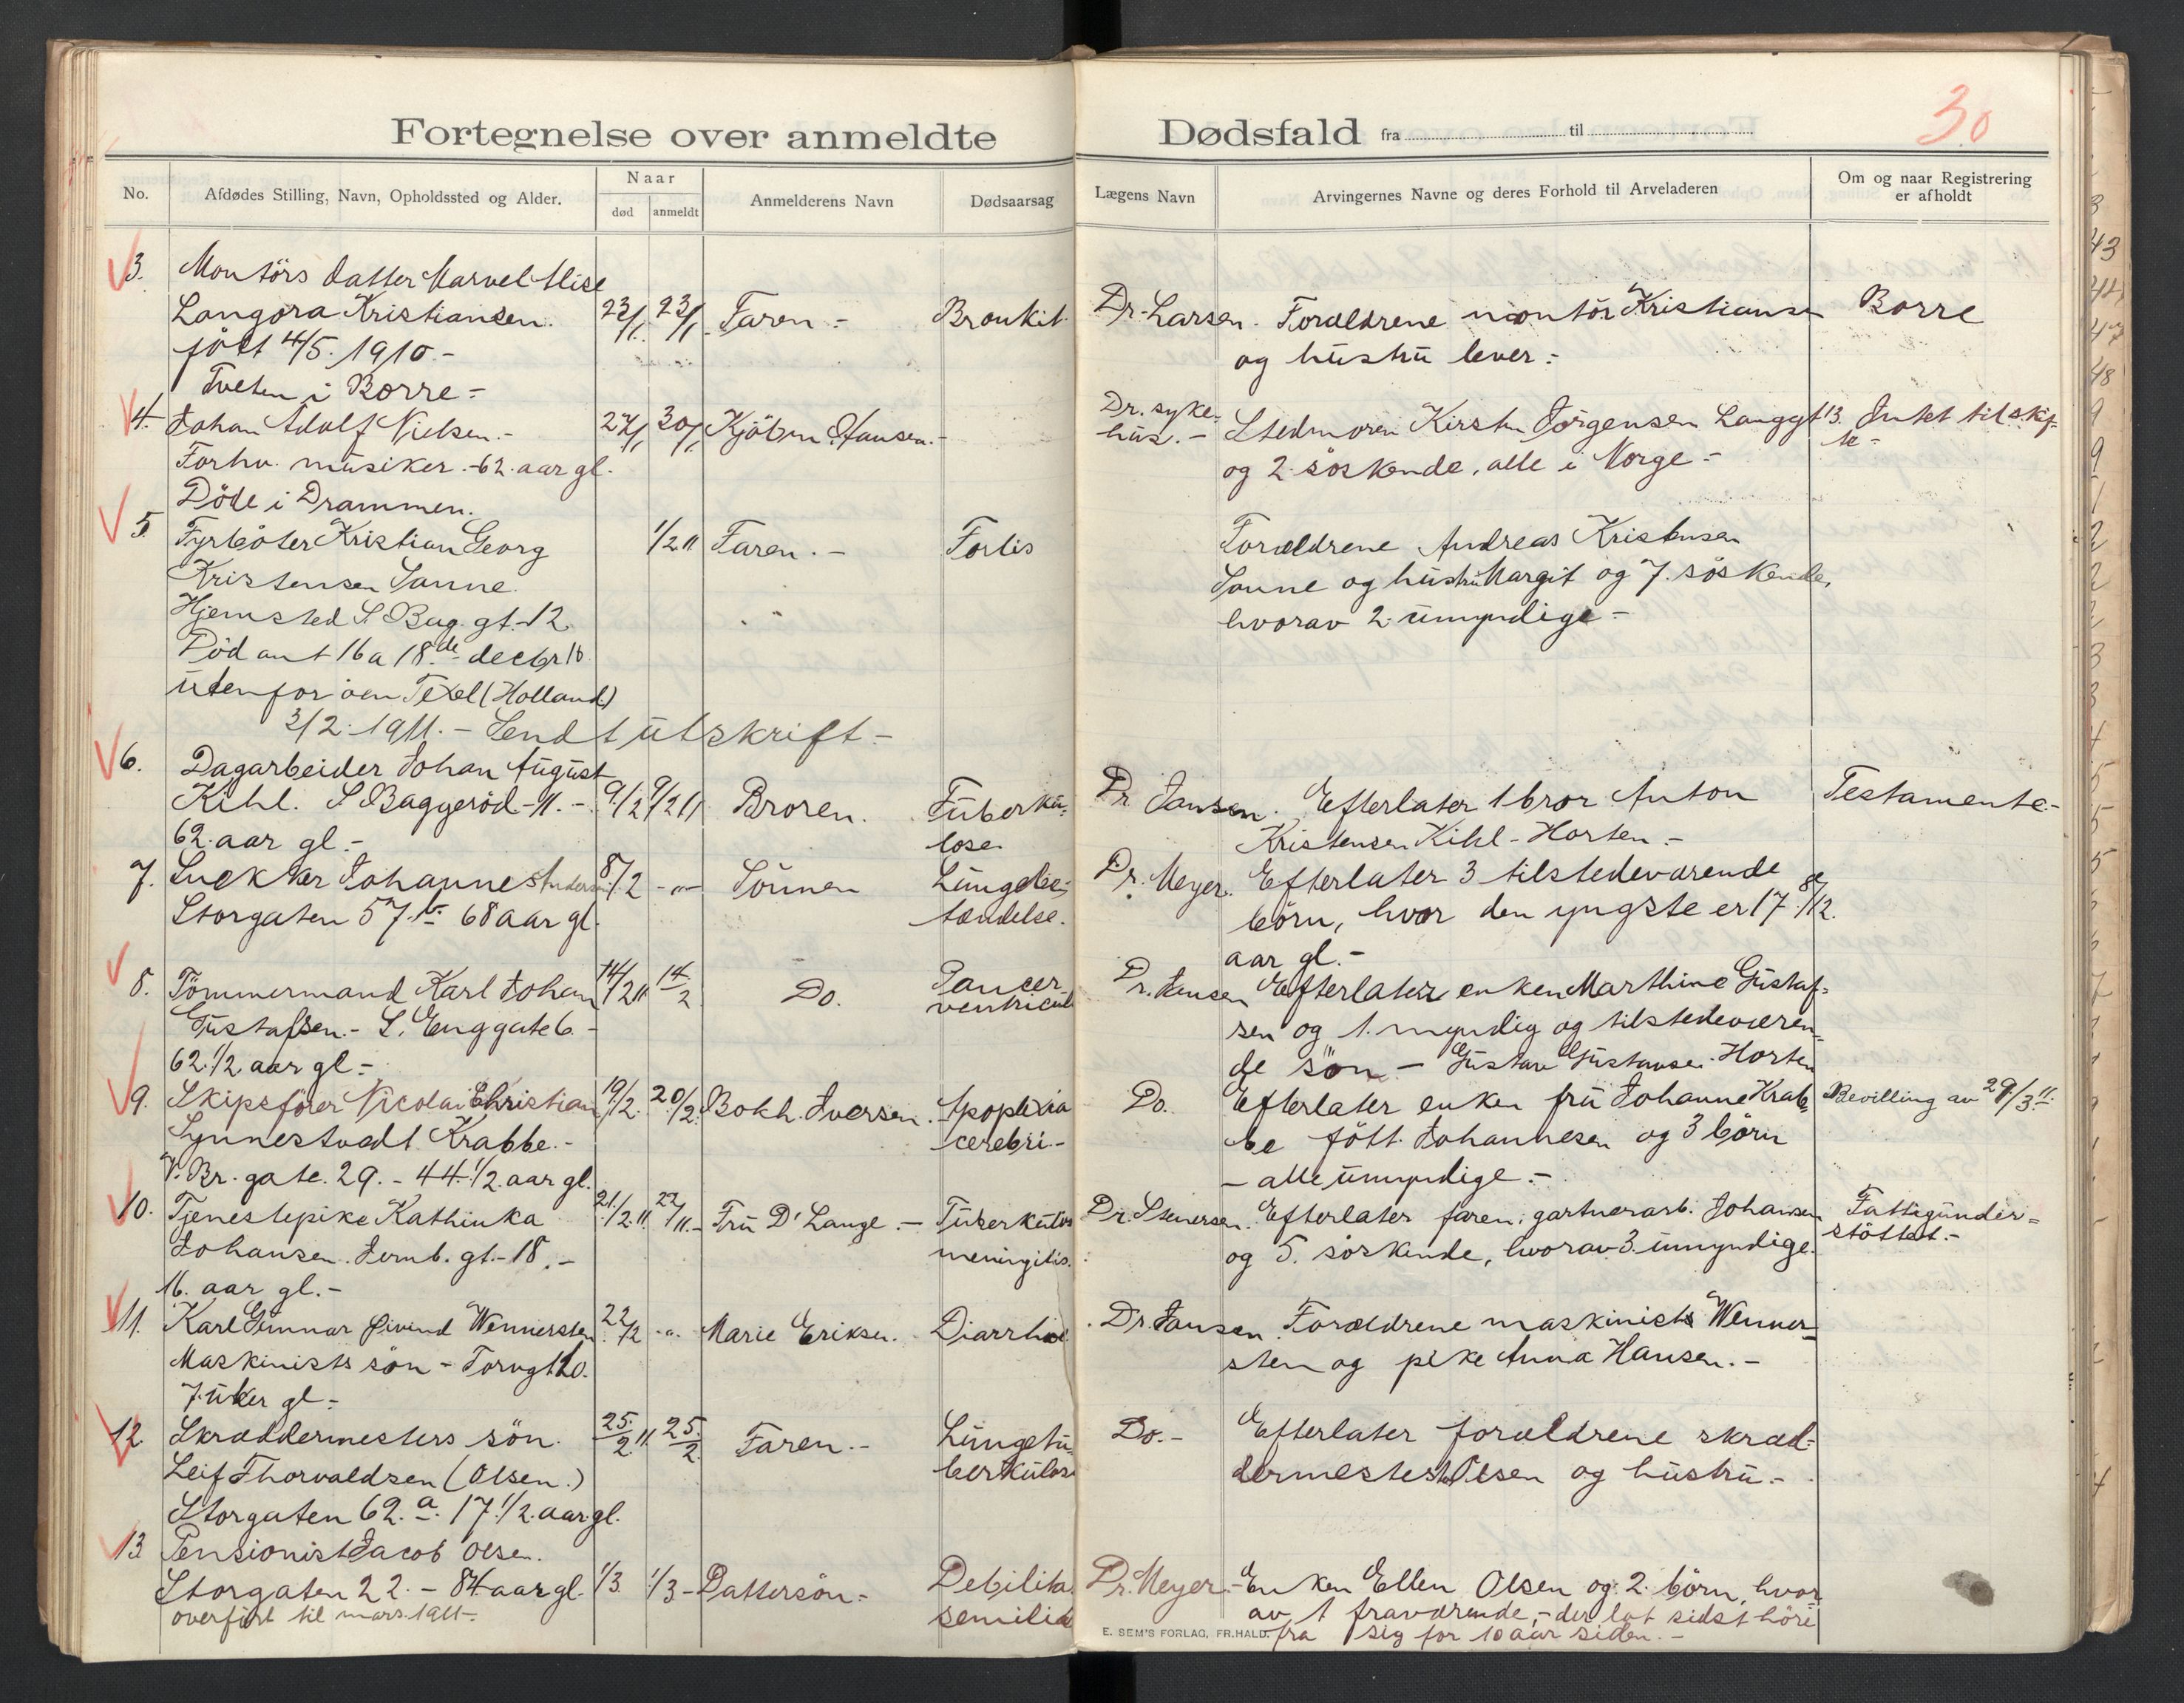 30
Fortegnelse over anmeldte Dødsfald fra til
No.
Afdødes Stilling, Navn, Opholdssted og Alder.
Naar
død
anmeldt
Anmelderens Navn
Dødsaarsag
Lægens Navn
Arvingernes Navne og deres Forhold til Arveladeren
Om og naar Registrering
er afholdt
3. Montörs datter Marvel Alise
Langora Kristiansen. 23/1. 23/1 Faren.- Bronkit
født 4/5.1910.-
Tveten i Borre-
Dr. Larsen. Forældrene montör Kristiansen
og hustru lever.-
Borre
4. Johan Adolf Nielsen.- 27/1 30/1 Kjöbm. Hansen.-
Forhv. musiker.-62. aar gl.
Döde i Drammen.
Dr. syke-
hus.-
Stedmoren Kirstn Jörgensen Langgt 13.
og 2 söskende, alle i Norge-
Intet til skif-
te-
5. Fyrböter Kristian Georg 1/2 11 Faren.- Forlis
Kristensen Sanne.
Hjemsted S. Bag. gt.-12.
Död ant 16 a 18de decbr 10
utenfor öen Texel (Holland)
3/2.1911.- Sendt utskrift-
Forældrene Andreas Kristensen
Sanne og hustru Margit og 7. söskende,
hvorav 2 umyndige-
6. Dagarbeider Johan August
Kihl. S Baggeröd-11.- 9/2 9/2 11 Broren. Tuberku-
62. aar gl.- lose.
Dr Jansen. Efterlater 1 bror Anton
Kristensen Kihl-Horten.-
Testamente.-
7. Snekker Johannes Anderssen 8/2 -"- Sönnen Lungebe-
Storgaten 57.b. 68 aar gl. tændelse.
Dr. Meyer. Efterlater 3 tilstedeværende
börn, hvor den yngste er 17 8/12.
aar gl.-
8. Tömmermand Karl Johan 14/2 11 14/2 Do. Cancer
Gustafsen.- S. Enggate 6- ventricul
62.1/2 aar gl-
Dr. Jansen Efterlater enken Marthine Gustaf-
sen og 1. myndig og tilstedeværen-
de sön- Gustav Gustavsen Horten
9. Skipsförer Nicolai Christian 19/2. 20/2. Bokh. Iversen. Apoplexia
Synnestvedt Krabbe.- cerebri.-
V. Br. gate. 29.-44.1/2. aar gl.
Do. Efterlater enken fru Johanne Krab-
be född Johannesen og 3 börn
-alle umyndige.-
Bevilling av 29/3 11.
10. Tjenestepike Kathinka 21/2.11. 22/11.- Fru Dr Lange.- Tuberkulos
Johansen. Jernb. gt.-18.- meningitis.
16. aar gl.-
Dr. Stenersen. Efterlater faren, gartnerarb. Johansen
og 5. söskende, hvorav 3. umyndige.
Fattigunder-
stöttet.-
11. Karl Gunnar Öivind Wennersten 22/2 -"- Marie Eriksen. Diarrhoe
Maskinists sön-Torvgt 20.
7. uker gl-
Dr. Jansen. Forældrene maskinist Wenner-
sten og pike Anna Hansen.-
12. Skræddermesters sön. 25/2.11. 25/2. Faren.- Lungetu-
Leif Thorvaldsen (Olsen.) berkulose
Storgaten 62.a. 17.1/2. aar gl.
Do.- Efterlater forældrene skræd-
dermester Olsen og hustru.-
13 Pensionist Jacob Olsen.
Storgaten 22.-84 aar gl. 1/3. 1/3- Dattersön- Debilita
overfört til mars 1911-. senilia
Dr. Meyer.- Enken Ellen Olsen og 2. börn, hvor
av 1 fraværende,-der lot sidst höre
fra sig for 10 aar siden.-
E. SEM'S FORLAG, FR.HALD.